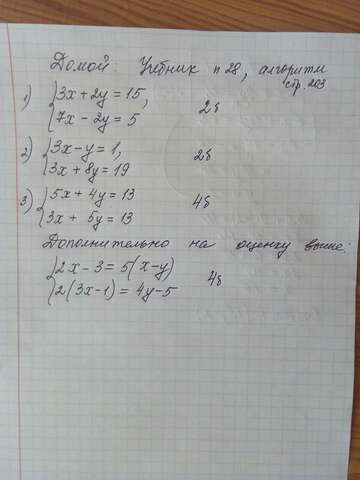 Домой: Учебник п 28, алгоритм
стр. 203
1) { 3x + 2y = 15, 2б
7x - 2y = 5
2) { 3x - y = 1, 2б
3x + 8y = 19
3) { 5x + 4y = 13 4б
3x + 5y = 13
Дополнительно на оценку выше:
{ 2x - 3 = 5(x-y) 4б
2(3x-1) = 4y-5